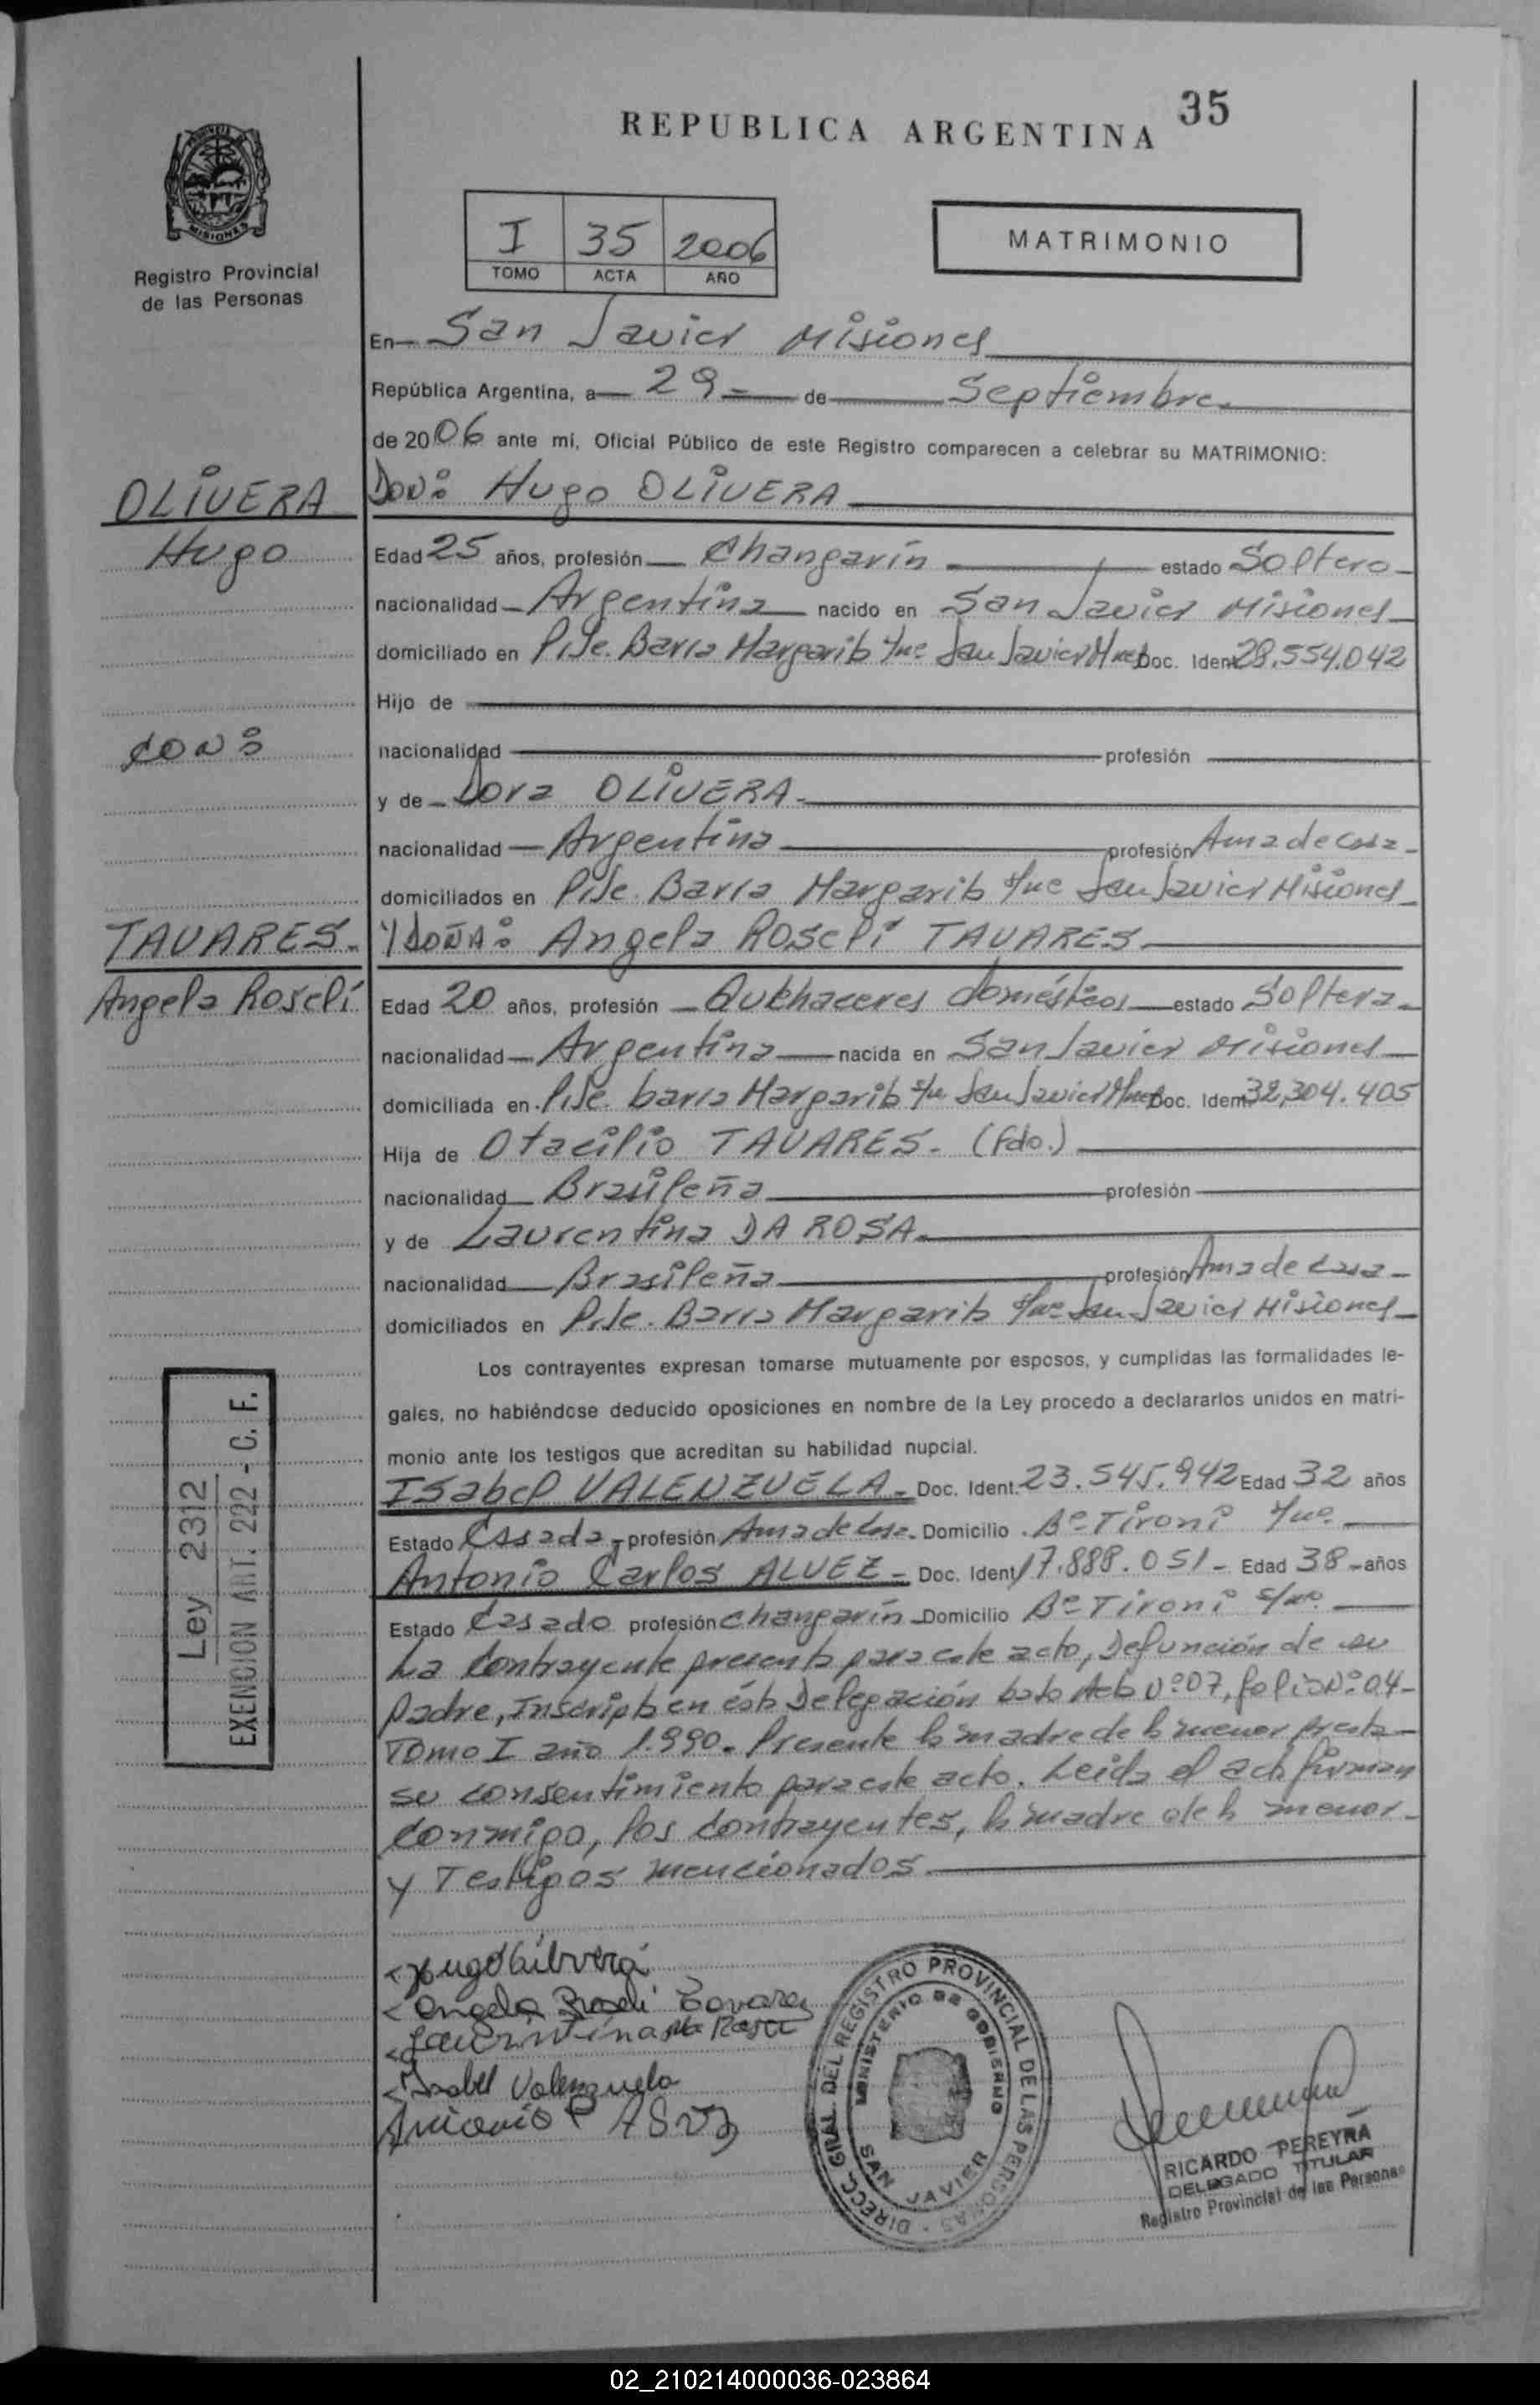 REPUBLICA ARGENTINA 35
MISIONES
Registro Provincial
de las Personas
I 35 2006
TOMO ACTA AÑO
MATRIMONIO
En San Javier Misiones
República Argentina, a 29 de Septiembre
de 2006 ante mi, Oficial Público de este Registro comparecen a celebrar su MATRIMONIO:
OLIVERA
Hugo
Don: Hugo OLIVERA
Edad 25 años, profesión Changarín estado Soltero
nacionalidad Argentina nacido en San Javier Misiones
domiciliado en Pje. Barra Margarita s/nº San Javier Mnes Doc. Ident 28.554.042
Hijo de
CON:
nacionalidad profesión
y de Dora OLIVERA
nacionalidad Argentina profesión Ama de casa
domiciliados en Pje. Barra Margarita s/nº San Javier Misiones
TAVARES.
Angela Roseli
Y DOÑA: Angela Roseli TAVARES
Edad 20 años, profesión Quehaceres domésticos estado Soltera
nacionalidad Argentina nacida en San Javier Misiones
domiciliada en Pje. barra Margarita s/nº San Javier Mnes Doc. Ident. 32,304.405
Hija de Otacilio TAVARES. (fdo.)
nacionalidad Brasileña profesión
y de Laurentina DA ROSA.
nacionalidad Brasileña profesión Ama de casa
domiciliados en Pje. Barra Margarita s/nº San Javier Misiones
Los contrayentes expresan tomarse mutuamente por esposos, y cumplidas las formalidades le-
gales, no habiéndose deducido oposiciones en nombre de la Ley procedo a declararlos unidos en matri-
monio ante los testigos que acreditan su habilidad nupcial.
Isabel VALENZUELA Doc. Ident. 23.545.942 Edad 32 años
Estado Casada profesión Ama de casa Domicilio Bº Tironi s/nº
Antonio Carlos ALVEZ Doc. Ident 17.888.051 Edad 38 años
Estado Casado profesión changarín Domicilio Bº Tironi s/nº
La contrayente presenta para este acto, Defunción de su
padre, Inscripta en ésta Delegación bajo Acta Nº 07, folio Nº: 04-
Tomo I año 1.990. Presente la madre de la menor presta
su consentimiento para este acto. Leida el acta firman
conmigo, los contrayentes, la madre de la menor
y Testigos mencionados.
Ley 2312
EXENCION ART. 222 - C. F.
Hugo Olivera
Angela Roseli Tavares
Laurentina da Rosa
Isabel Valenzuela
Antonio C
DIRECC. GRAL. DEL REGISTRO PROVINCIAL DE LAS PERSONAS
MINISTERIO DE GOBIERNO
SAN JAVIER
RICARDO PEREYRA
DELEGADO TITULAR
Registro Provincial de las Personas
02_210214000036-023864